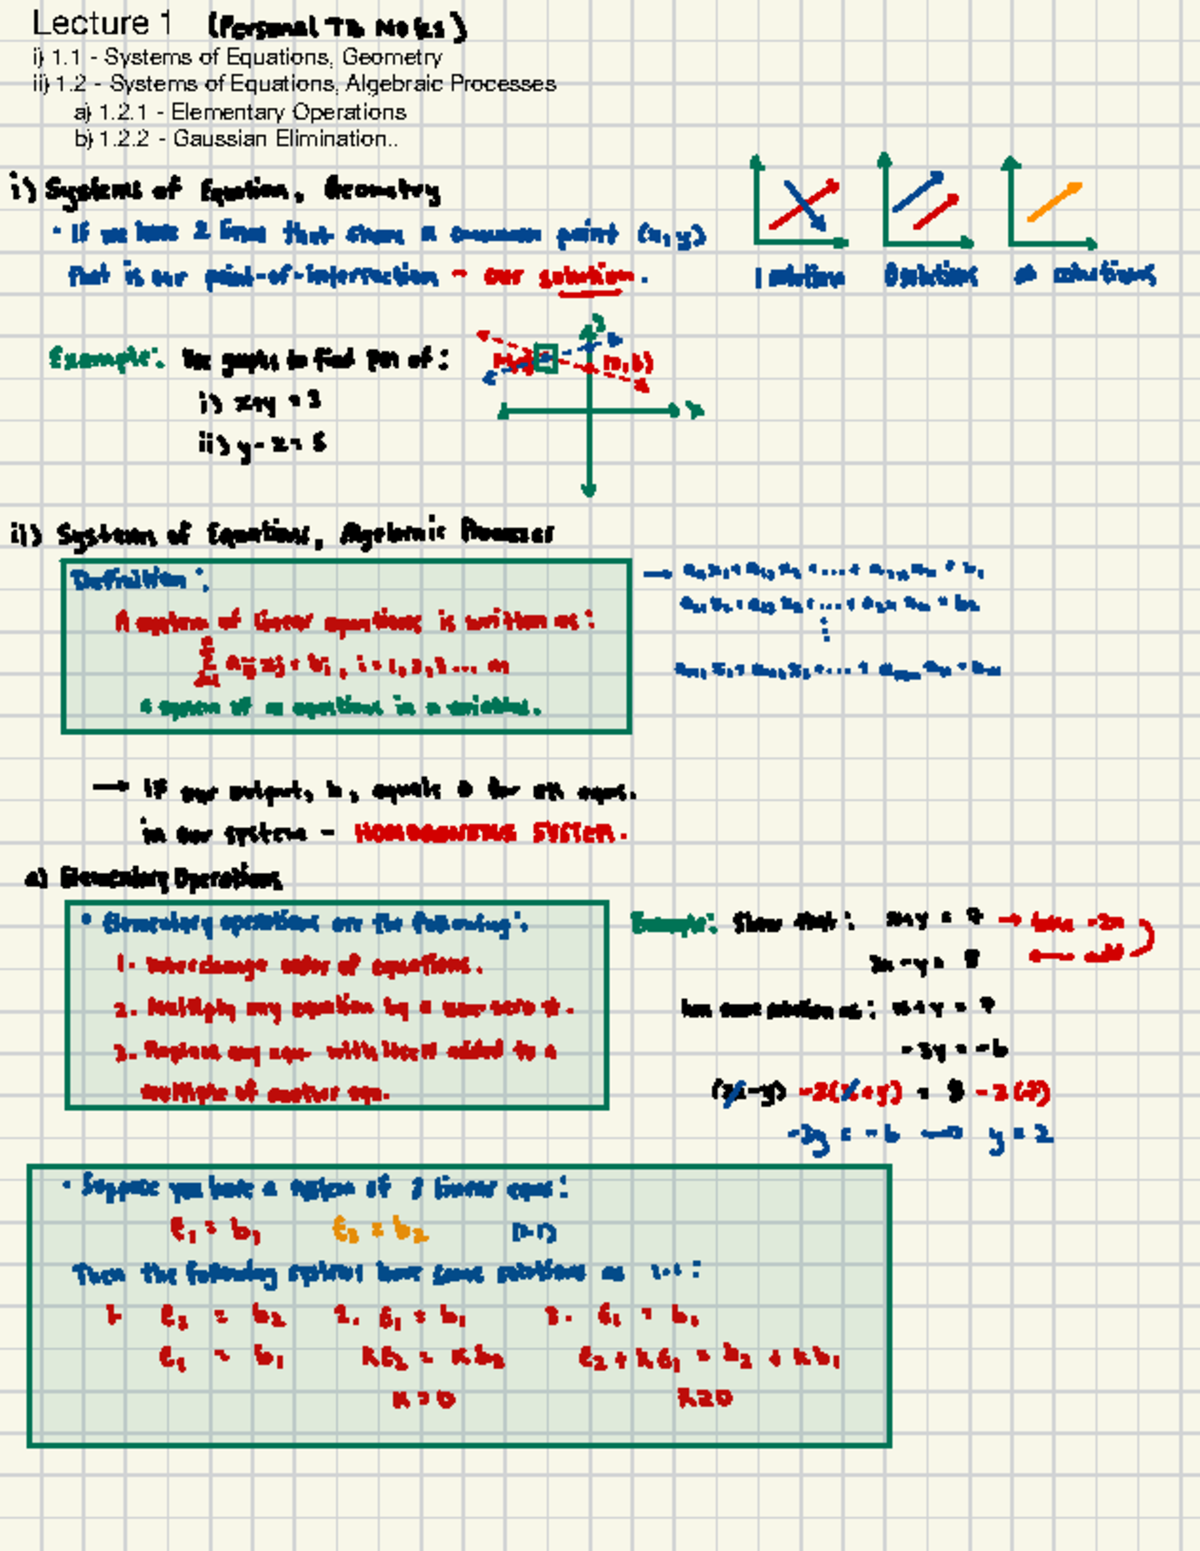 Lecture 1 (Personal TB Notes)
i) 1.1 - Systems of Equations, Geometry
ii) 1.2 - Systems of Equations, Algebraic Processes
a) 1.2.1 - Elementary Operations
b) 1.2.2 - Gaussian Elimination..
i) Systems of Equation, Geometry
• If we have 2 lines that share a common point (x,y)
that is our point-of-intersection - our solution.
1 solution 0 solutions ∞ solutions
Example: Use graphs to find POI of:
i) x+y = 3
ii) y-x = 5
y
x
ii) Systems of Equations, Algebraic Processes
Definition:
A system of linear equations is written as:
aij xj = bi, i = 1, 2, 3 ... m
a system of m equations in n variables.
→ a11x1 + a12x2 + ... + a1nxn = b1
a21x1 + a22x2 + ... + a2nxn = b2
⋮
am1x1 + am2x2 + ... + amnxn = bm
→ If our output, b, equals 0 for all eqns.
in our system - HOMOGENEOUS SYSTEM.
a) Elementary Operations
• Elementary operations are the following:
1. Interchange order of equations.
2. Multiply any equation by a non-zero #.
3. Replace any eqn with itself added to a
multiple of another eqn.
Example: Show that: x+y = 7 →
2x-y = 8 ← add
has same solution as: x+y = 7
-3y = -6
(2x-y) -2(x+y) = 8 -2(7)
-3y = -6 → y = 2
• Suppose you have a system of 2 linear eqns:
E1 = b1 E2 = b2
Then the following systems have same solutions as
1. E2 = b2 2. E1 = b1 3. E1 = b1
E1 = b1 kE2 = kb2 E2 + kE1 = b2 + kb1